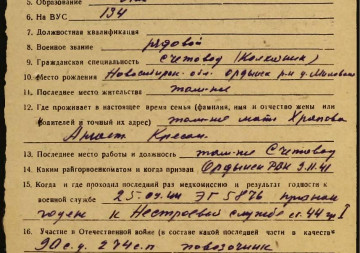 5. Образование
6. На ВУС 134
7. Должностная квалификация
8. Военное звание рядовой
9. Гражданская специальность Счетовод
10. Место рождения Новосибирск. обл. Ордынск. р-н д.
11. Последнее место жительства там-же
12. Где проживает в настоящее время семья (фамилия, имя и отчество жены или
родителей и точный их адрес) там-же мать Храпова
13. Последнее место работы и должность там-же Счетовод
14. Каким райгорвоенкоматом и когда призван Ордынск РВК 9.11.41
15. Когда и где проходил последний раз медкомиссию и результат годности к
военной службе 25.07.44 ЭГ 5876 признан
годен к Нестроевой службе ст. 44 гр I
16. Участие в Отечественной войне (в составе какой последней части в качестве
90 с.д. 274 с.п повозочник